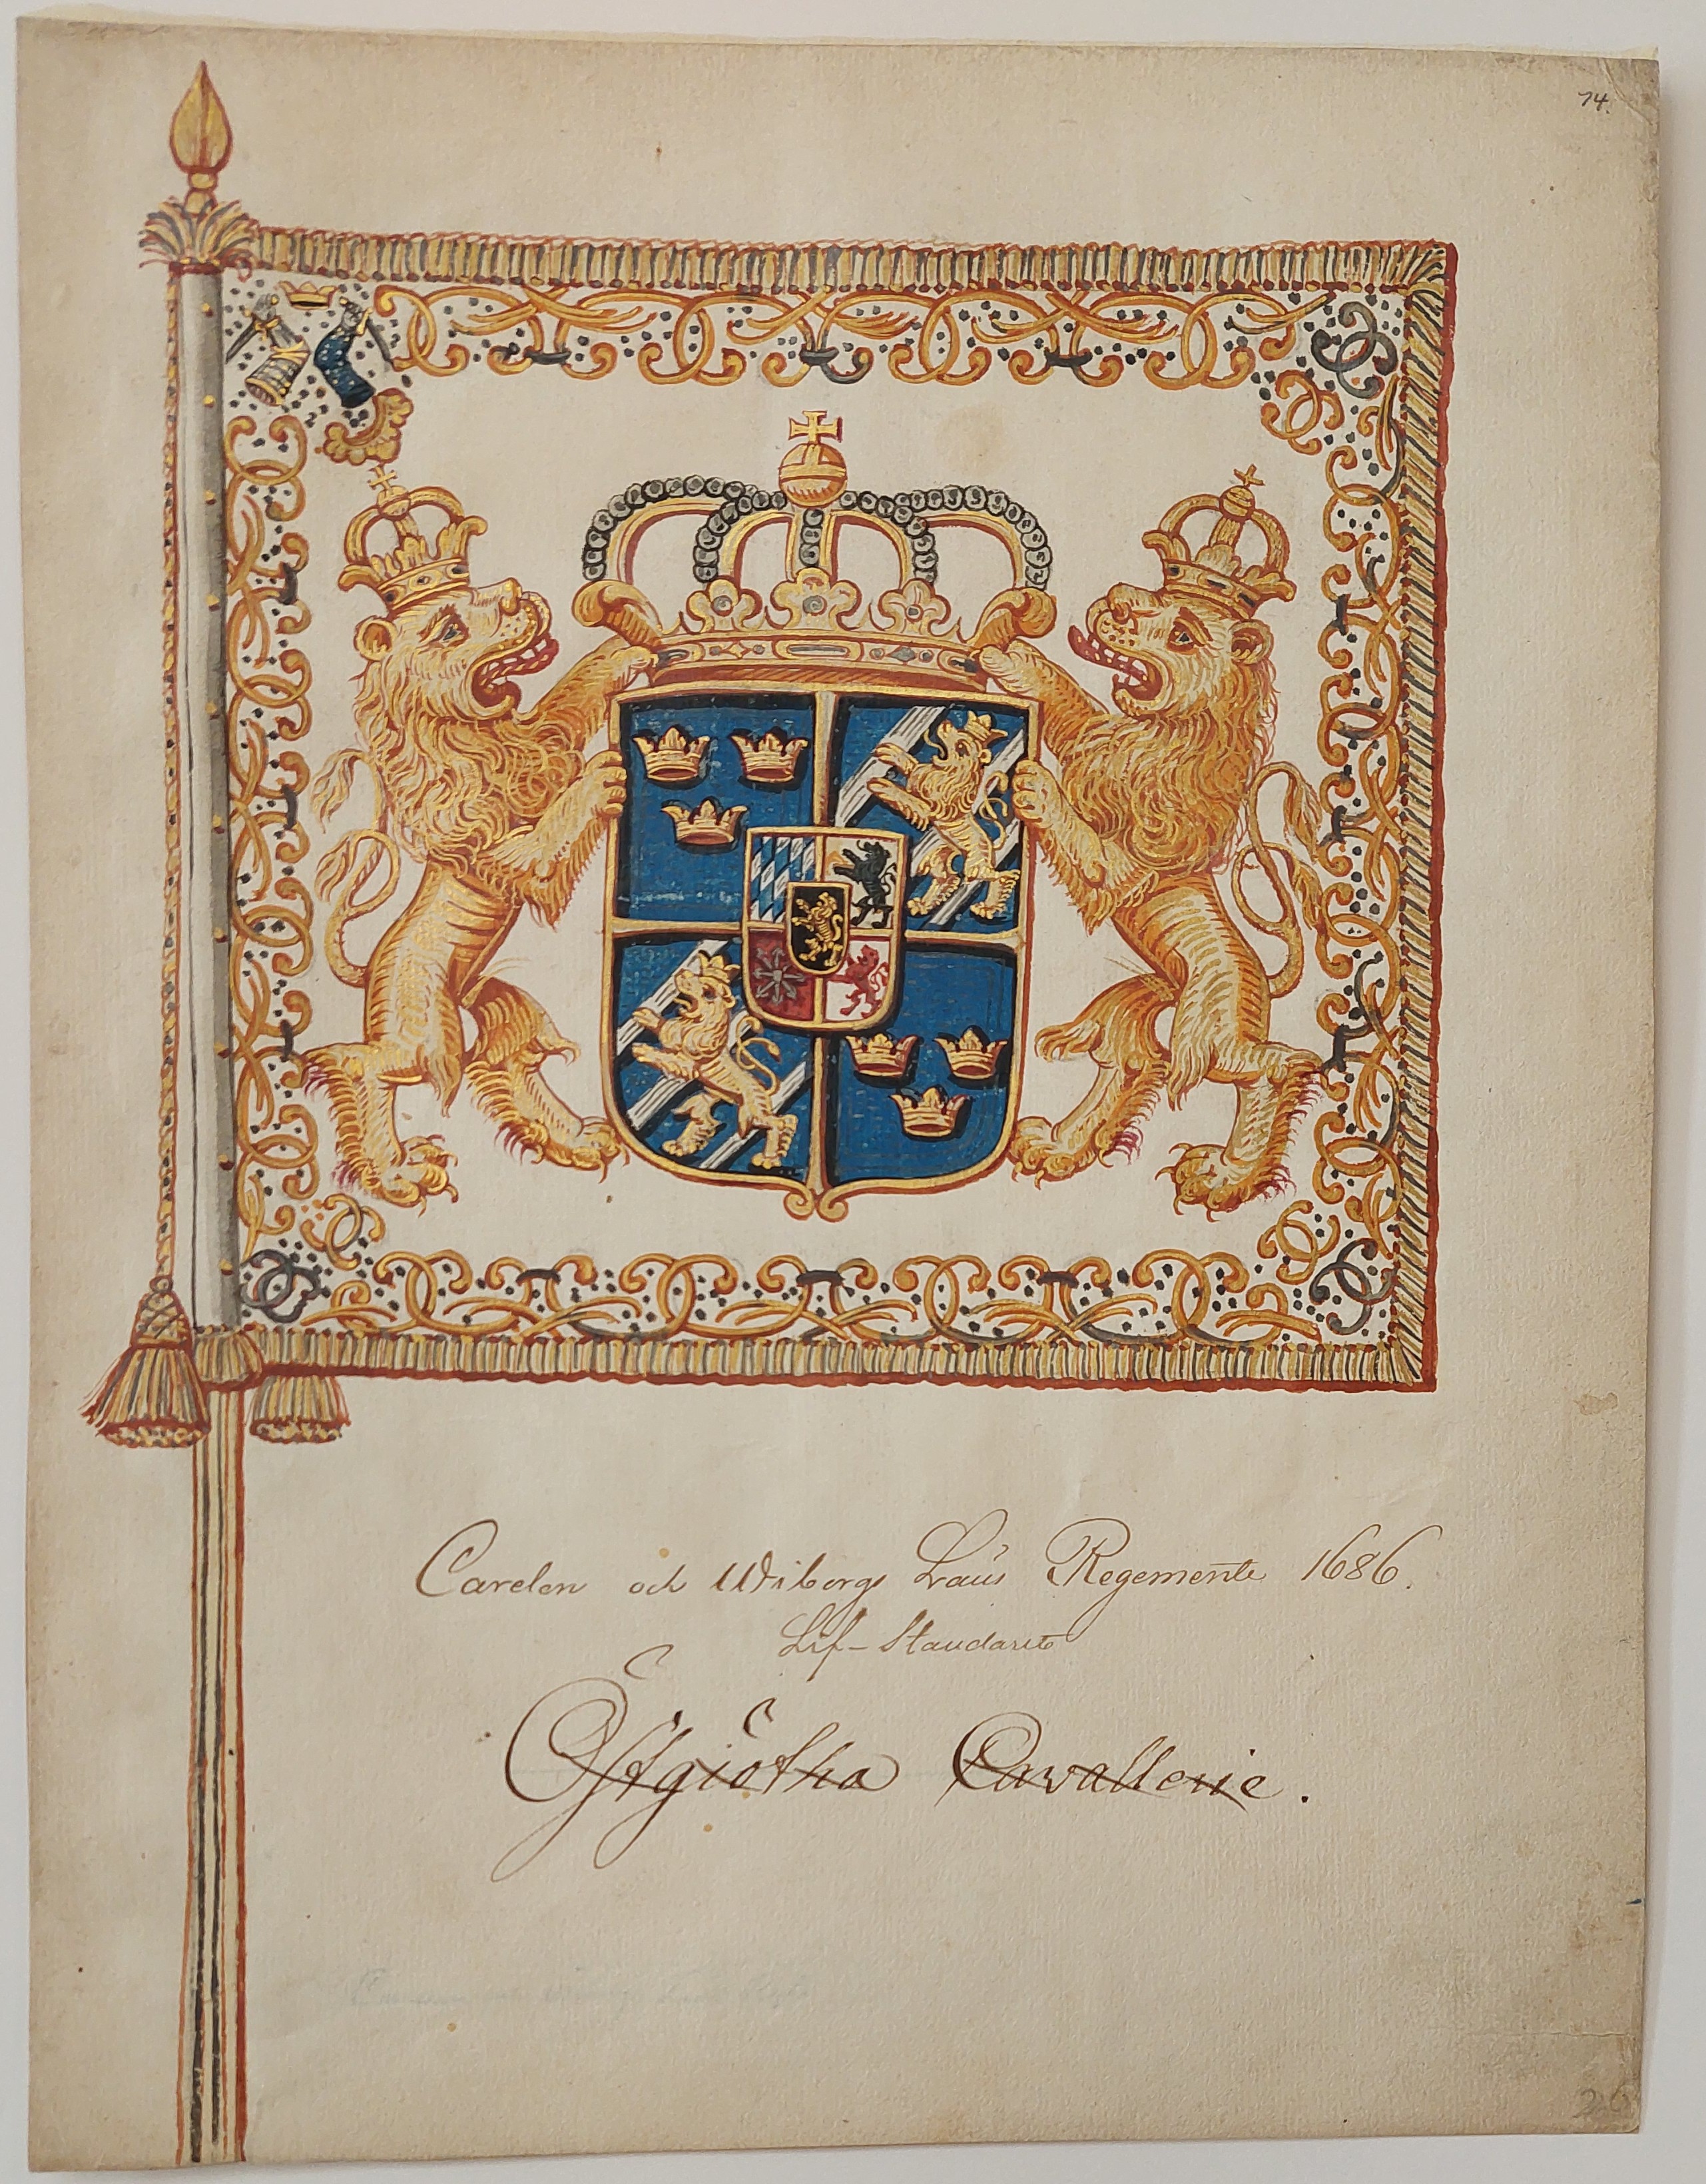 74.
Carelen och Wiborgs Läns Regemente 1686.
Lif-Standarte
Östgiötha Cavallerie.